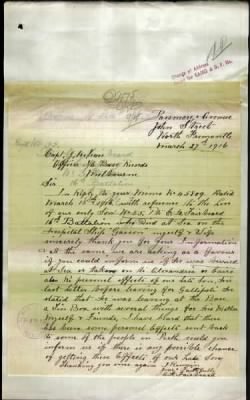 Change of Address
John Street
North Fremantle
March 27th 1916
Capt J.
Officer I/c Base Records
Melbourne
Sir
In Reply to your Memo No 45589 Dated
March 18th 1916 with reference to the Loss
of our only Son No
16th Battalion who Died at Sea on the
Hospital Ship Gascon Myself & Wife
sincerely thank you for your Information
at the same we are asking as a favour
if you could inform us if he was Buried
at Sea or taken on to Alexandria or Cairo
also his personel effects of our late Son, his
last letter Before leaving for Gallipoli he
stated that he was leaving at the Base
a Tin Box with several things for his Mother
Myself & Friends. I have heard that there
has been some personel Effects sent back
to some of the people in Perth could you
inform me if there is any possible chance
of getting these Effects of our Late Son
Thanking you once again
I Remain
Yours Faithfully